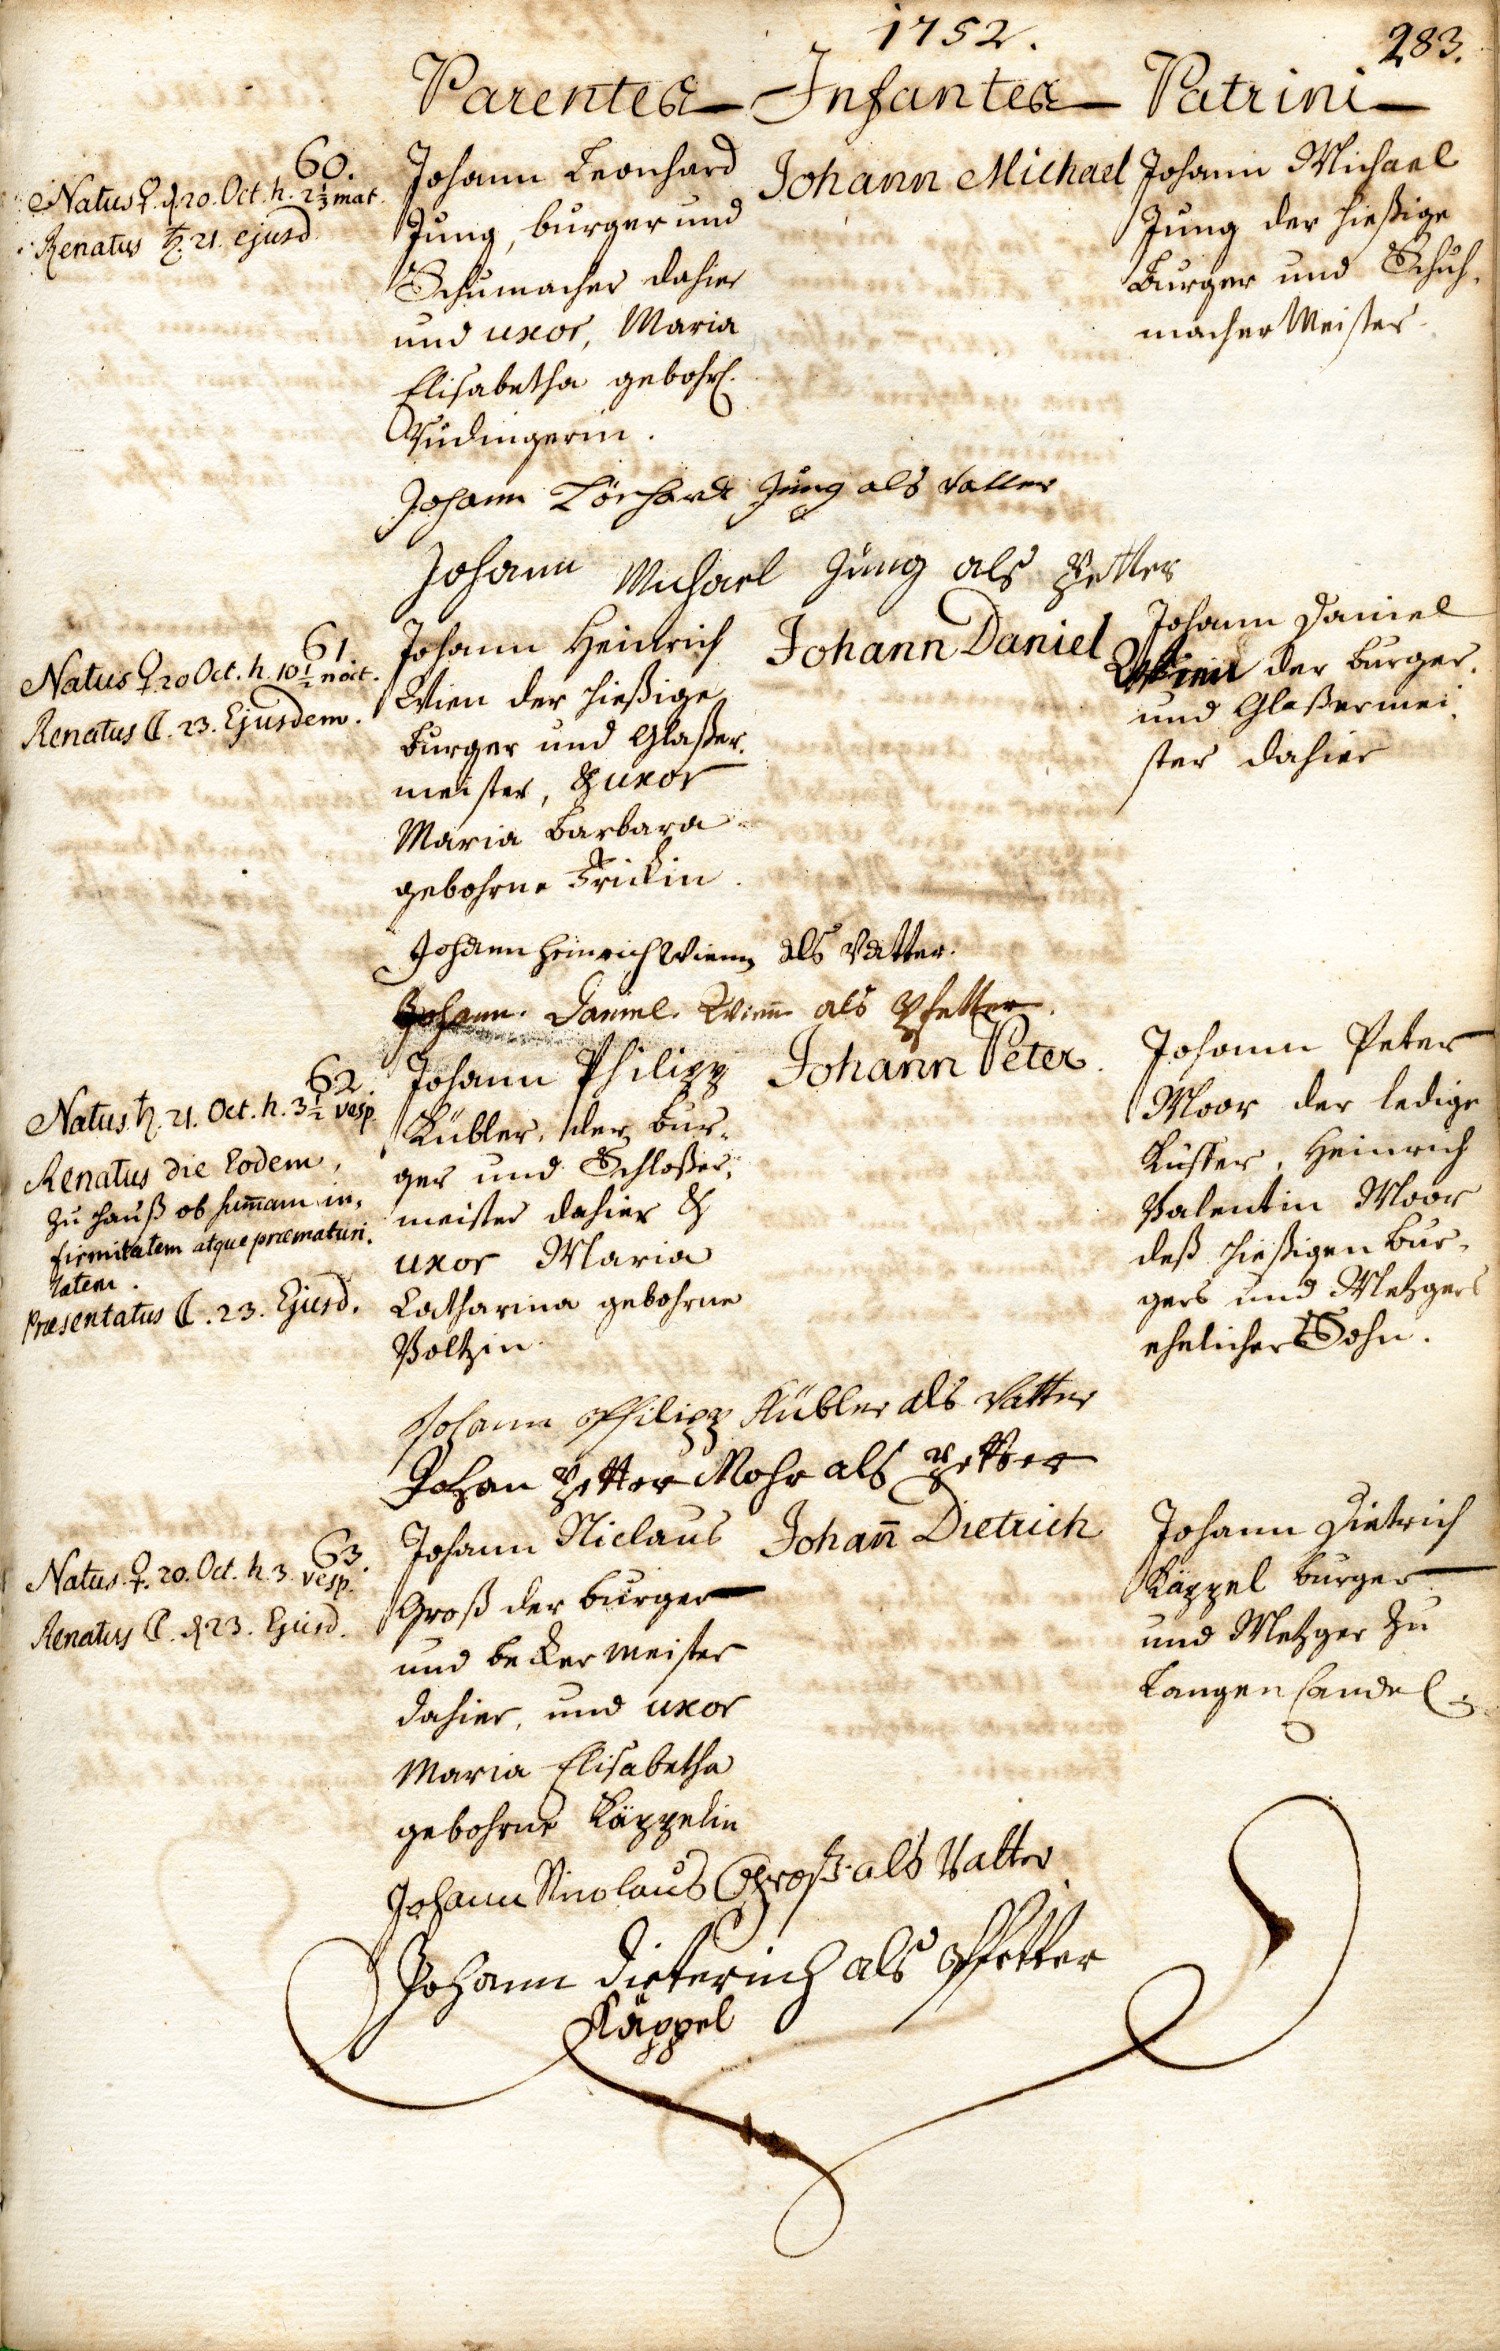 1752.
283.
Parentes Infantes Patrini
60.
Natus ♀. d 20. Oct. h. 2⅓ mat.
Renatus ♄. 21. ejusd.
Johann Leonhard
Jung, burger und
Schumacher dahier
und uxor, Maria
Elisabetha gebohrl.
Rüdingerin.
Johann Michael
Johann Michael
Jung der hießige
Burger und Schuh-
macher Meister.
Johann Lönhard Jung als Vatter
Johann Michael Jung als Petter
61.
Natus ♀. 20 Oct. h. 10½ noct.
Renatus ☾. 23. Ejusdem.
Johann Heinrich
Wien der hießige
Burger und Glaßer-
meister, & uxor
Maria Barbara
gebohrne Frickin.
Johann Daniel
Johann Daniel
Wien der Burger
und Glaßermei-
ster dahier
Johann Heinrich Wienn als Vatter.
Johann. Daniel. Wien̄ als Pfetter.
62.
Natus ♄. 21. Oct. h. 3½ vesp.
Renatus die Eodem,
zu Hauß ob sum̄am in-
firmitatem atque præmaturi-
tatem.
Præsentatus ☾. 23. Ejusd.
Johann Philipp
Kübler, der Bur-
ger und Schloßer-
meister dahier &
uxor Maria
Catharina gebohrne
Voltzin.
Johann Peter.
Johann Peter
Moor der ledige
Küffer, Heinrich
Valentin Moor
deß hießigen Bur-
gers und Metzgers
ehelicher Sohn.
Johann Philipp Kübler als Vatter
Johan Petter Mohr als Petter
63.
Natus. ♀. 20. Oct. h. 3. vesp.
Renatus ☾. d 23. Ejusd.
Johann Niclaus
Groß der Burger
und becker Meister
dahier, und uxor
Maria Elisabetha
gebohrne Käppelin
Johan̄ Dietrich
Johann Dietrich
Käppel Burger
und Metzger zu
Langen Candel.
Johann Nicolaus Groß als Vatter
Johann Dieterich als Pfetter
Käppel